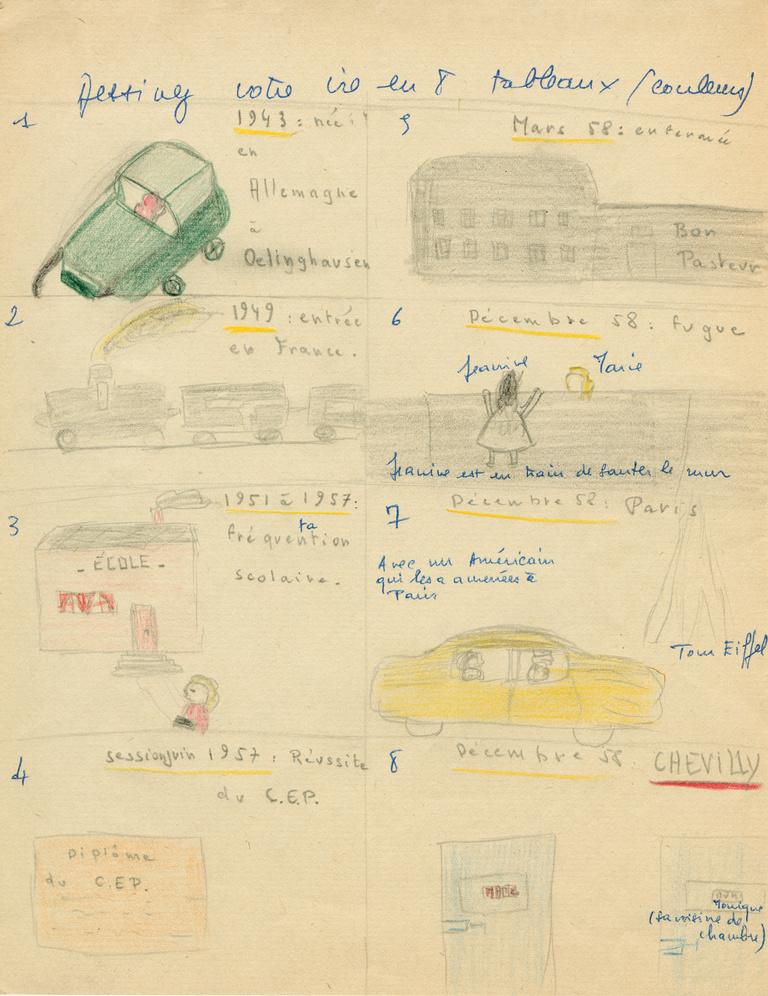 Dessinez votre vie en 8 tableaux (couleurs)
1
1943 : née
en
Allemagne
à
Oelinghausen
2
1949 : entrée
en France.
3
1951 à 1957 :
fréquention
ta
scolaire.
- ÉCOLE -
4
session juin 1957 : Réussite
du C.E.P.
Diplôme
du C.E.P.
5
Mars 58 : enfermée
Bon
Pasteur
6
Décembre 58 : fugue
Jeanine
Marie
Jeanine est en train de sauter le mur
7
Décembre 58 : Paris
Avec un Américain
qui les a amenées à
Paris
Tour Eiffel
8
Décembre 58 : CHEVILLY
Monique
(sa voisine de
chambre)